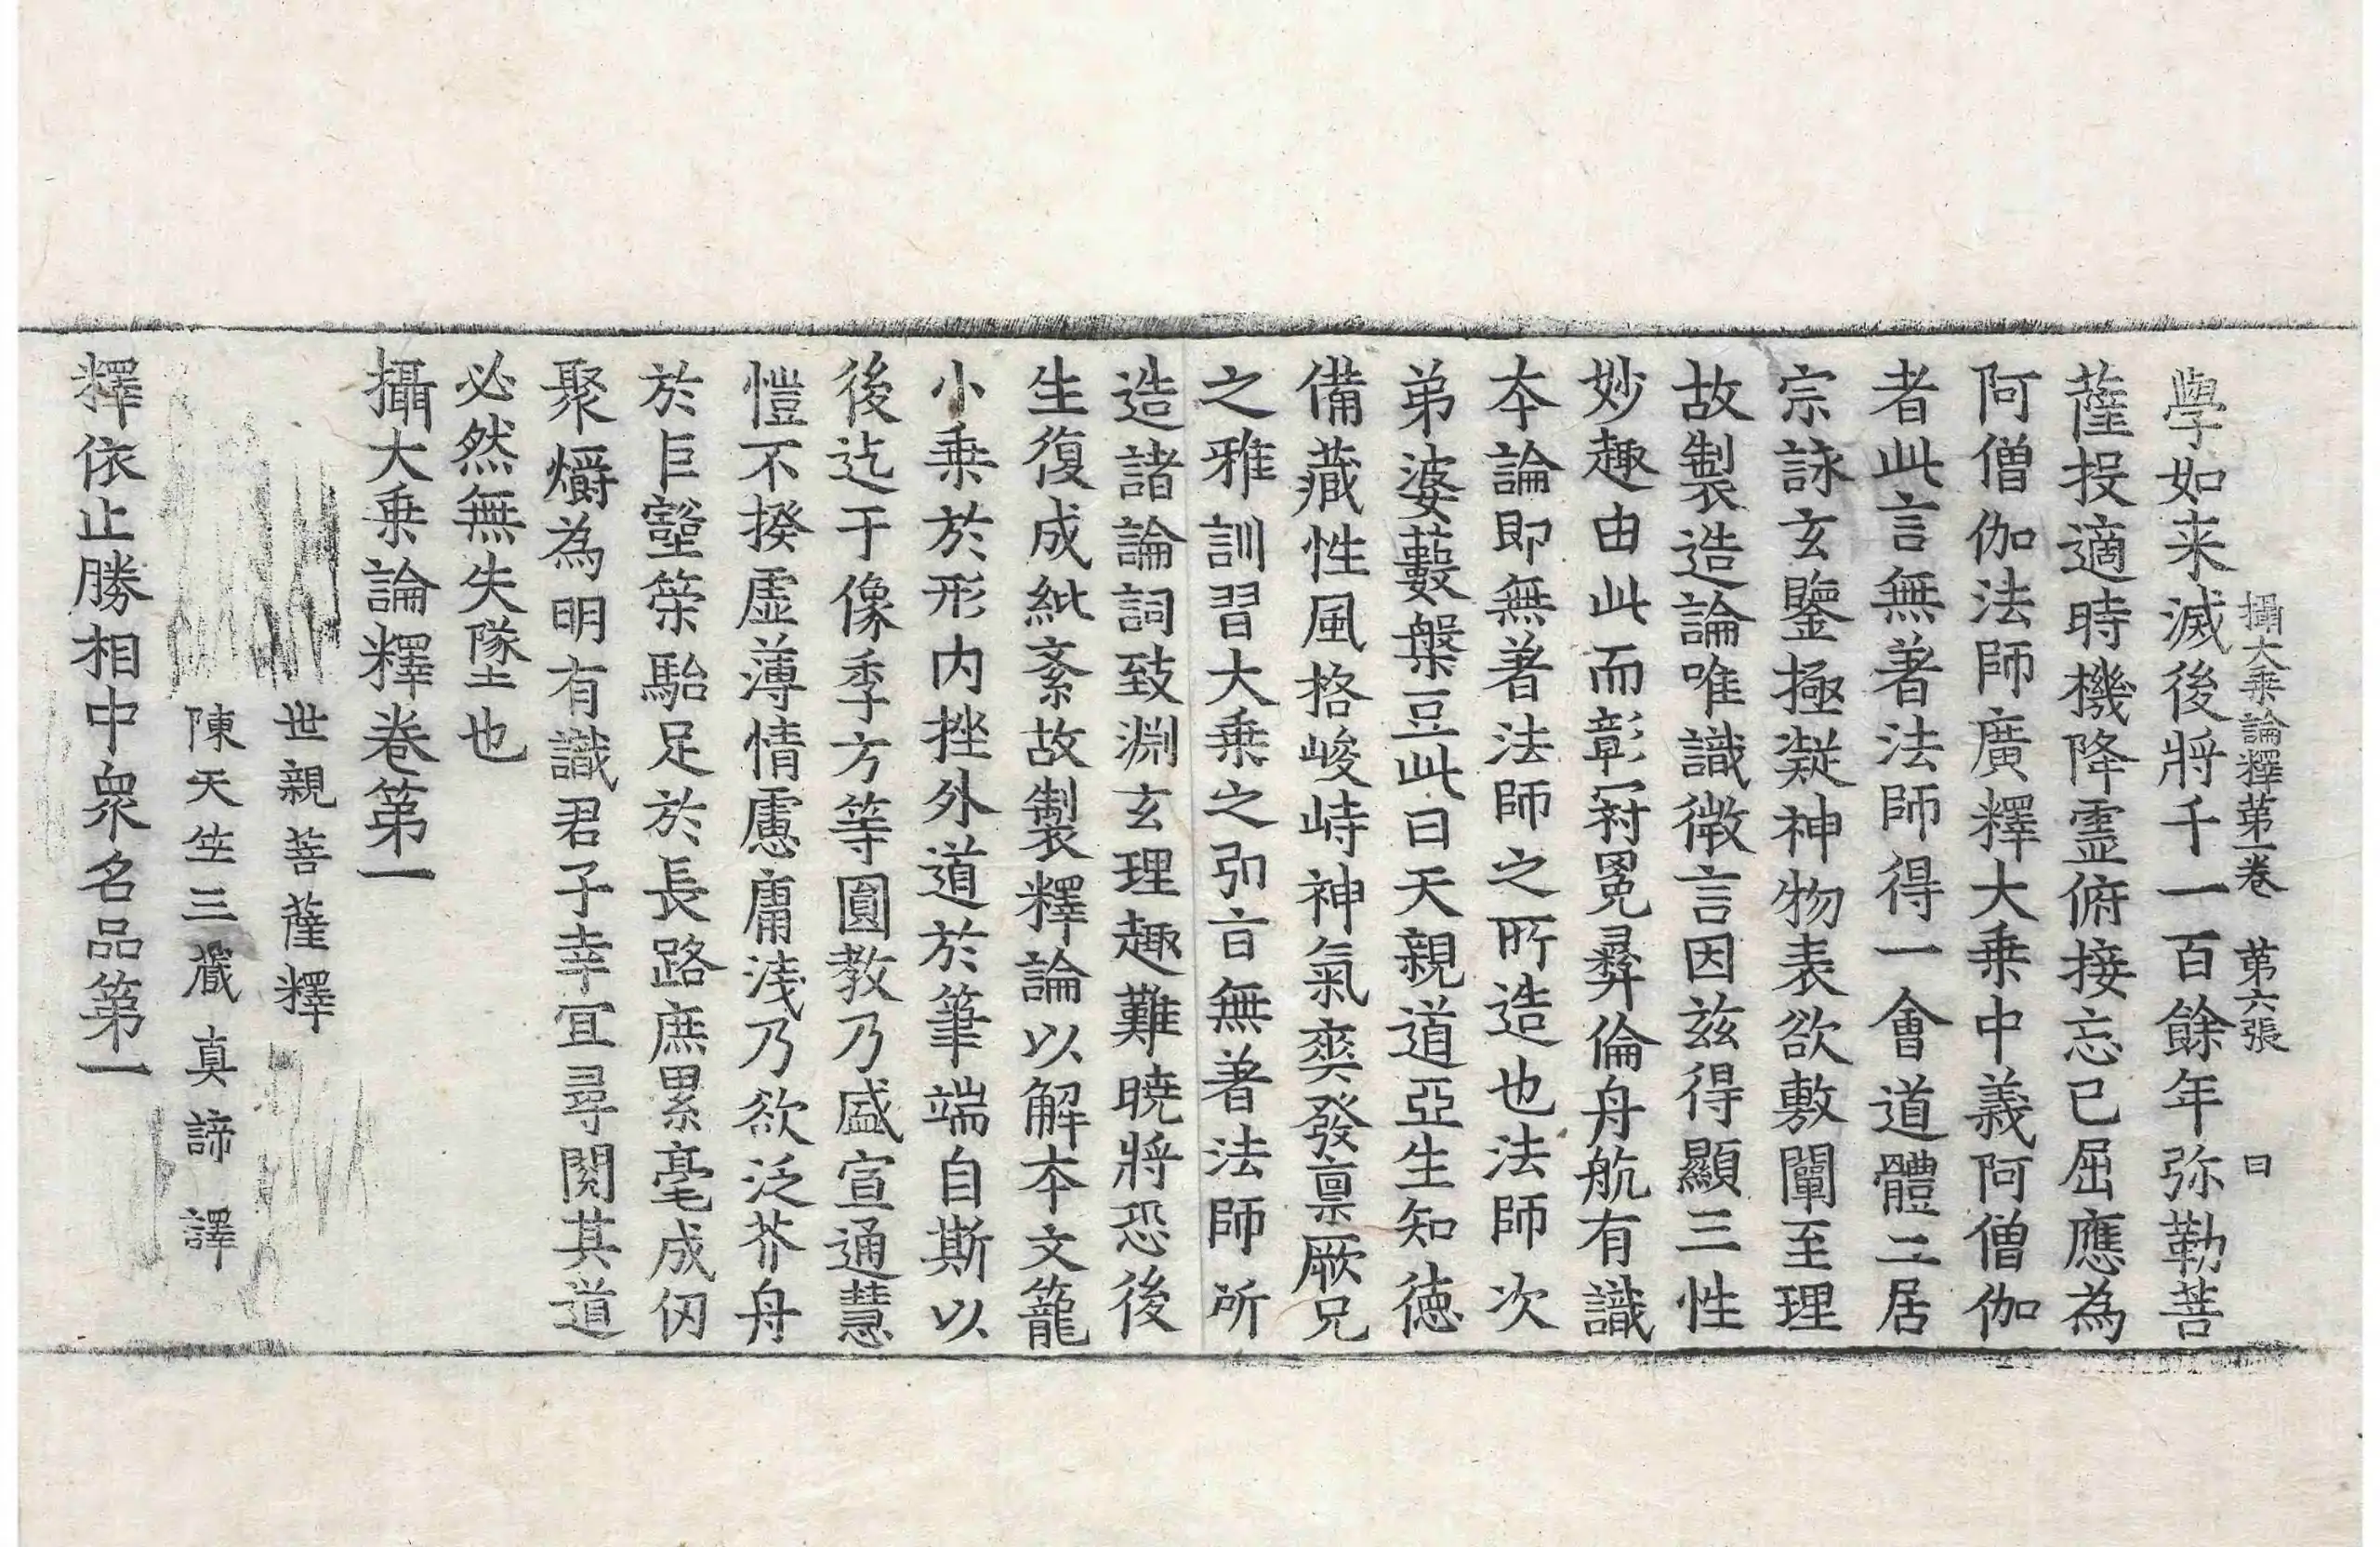 攝大乗論釋第一卷　第六張　曰
學如来滅後將千一百餘年弥勒菩
薩投適時機降靈俯接忘已屈應為
阿僧伽法師廣釋大乗中義阿僧伽
者此言無著法師得一會道體二居
宗詠玄鑒極凝神物表欲敷闡至理
故製造論唯識微言因兹得顯三性
妙趣由此而彰冠冕彛倫舟航有識
本論即無著法師之所造也法師次
弟婆藪槃豆此曰天親道亞生知徳
備藏性風格峻峙神氣爽發稟厥兄
之雅訓習大乗之弘旨無著法師所
造諸論詞致淵玄理趣難曉將恐後
生復成紕紊故製釋論以解本文籠
小乗於形内挫外道於筆端自斯以
後迄于像季方等圓教乃盛宣通慧
愷不揆虚薄情慮庸淺乃欲泛芥舟
於巨壑策駘足於長路庶累毫成仞
聚爝為明有識君子幸宜尋閱其道
必然無失墜也
攝大乗論釋卷第一
世親菩薩釋
陳天竺三藏真諦譯
釋依止勝相中衆名品第一